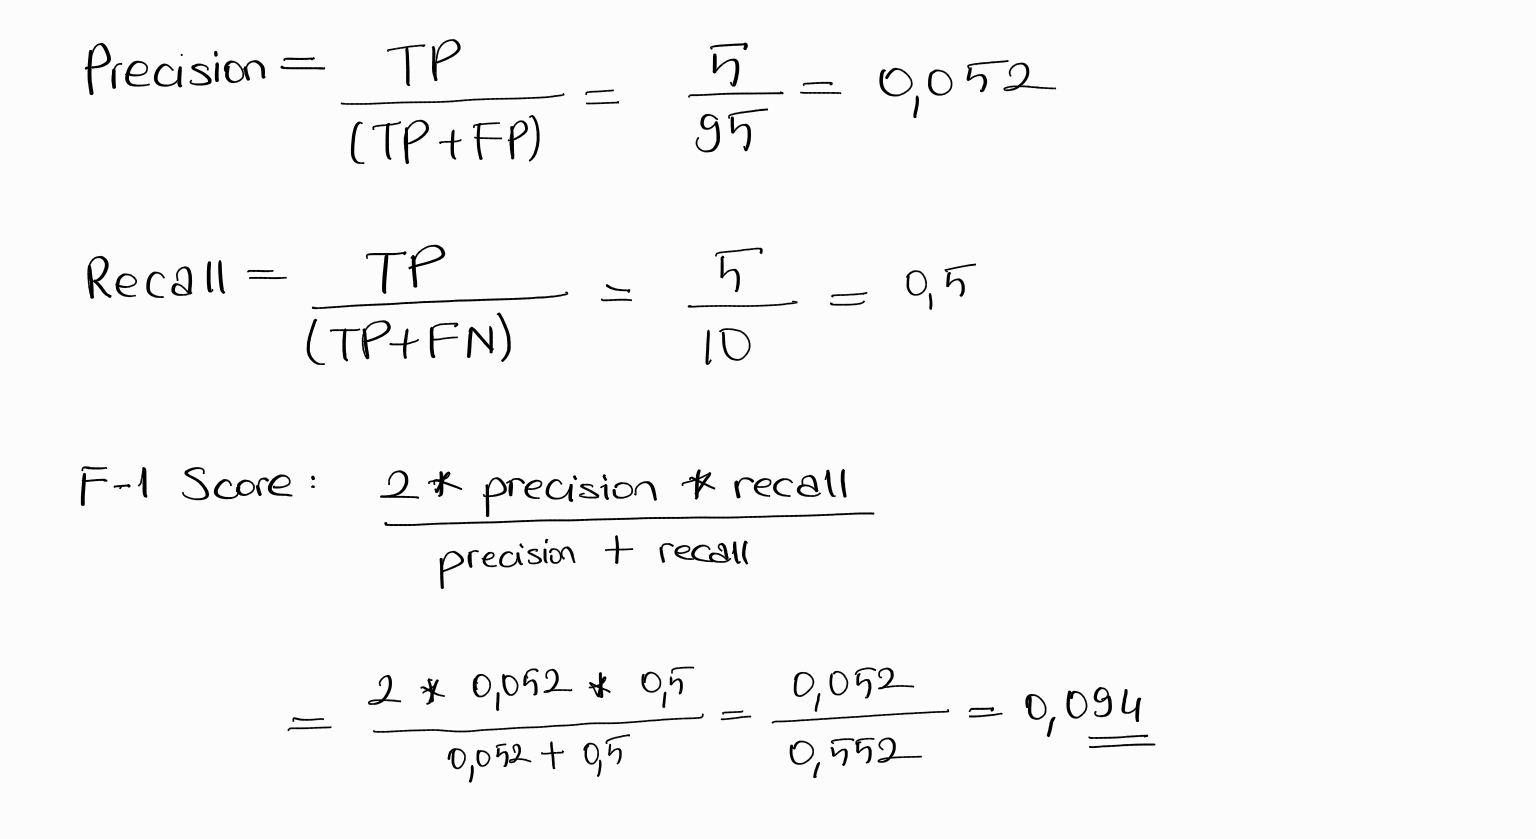 Precision = TP / (TP+FP) = 5 / 95 = 0,052
Recall = TP / (TP+FN) = 5 / 10 = 0,5
F-1 Score: 2 * precision * recall / precision + recall
= 2 * 0,052 * 0,5 / 0,052 + 0,5 = 0,052 / 0,552 = 0,094